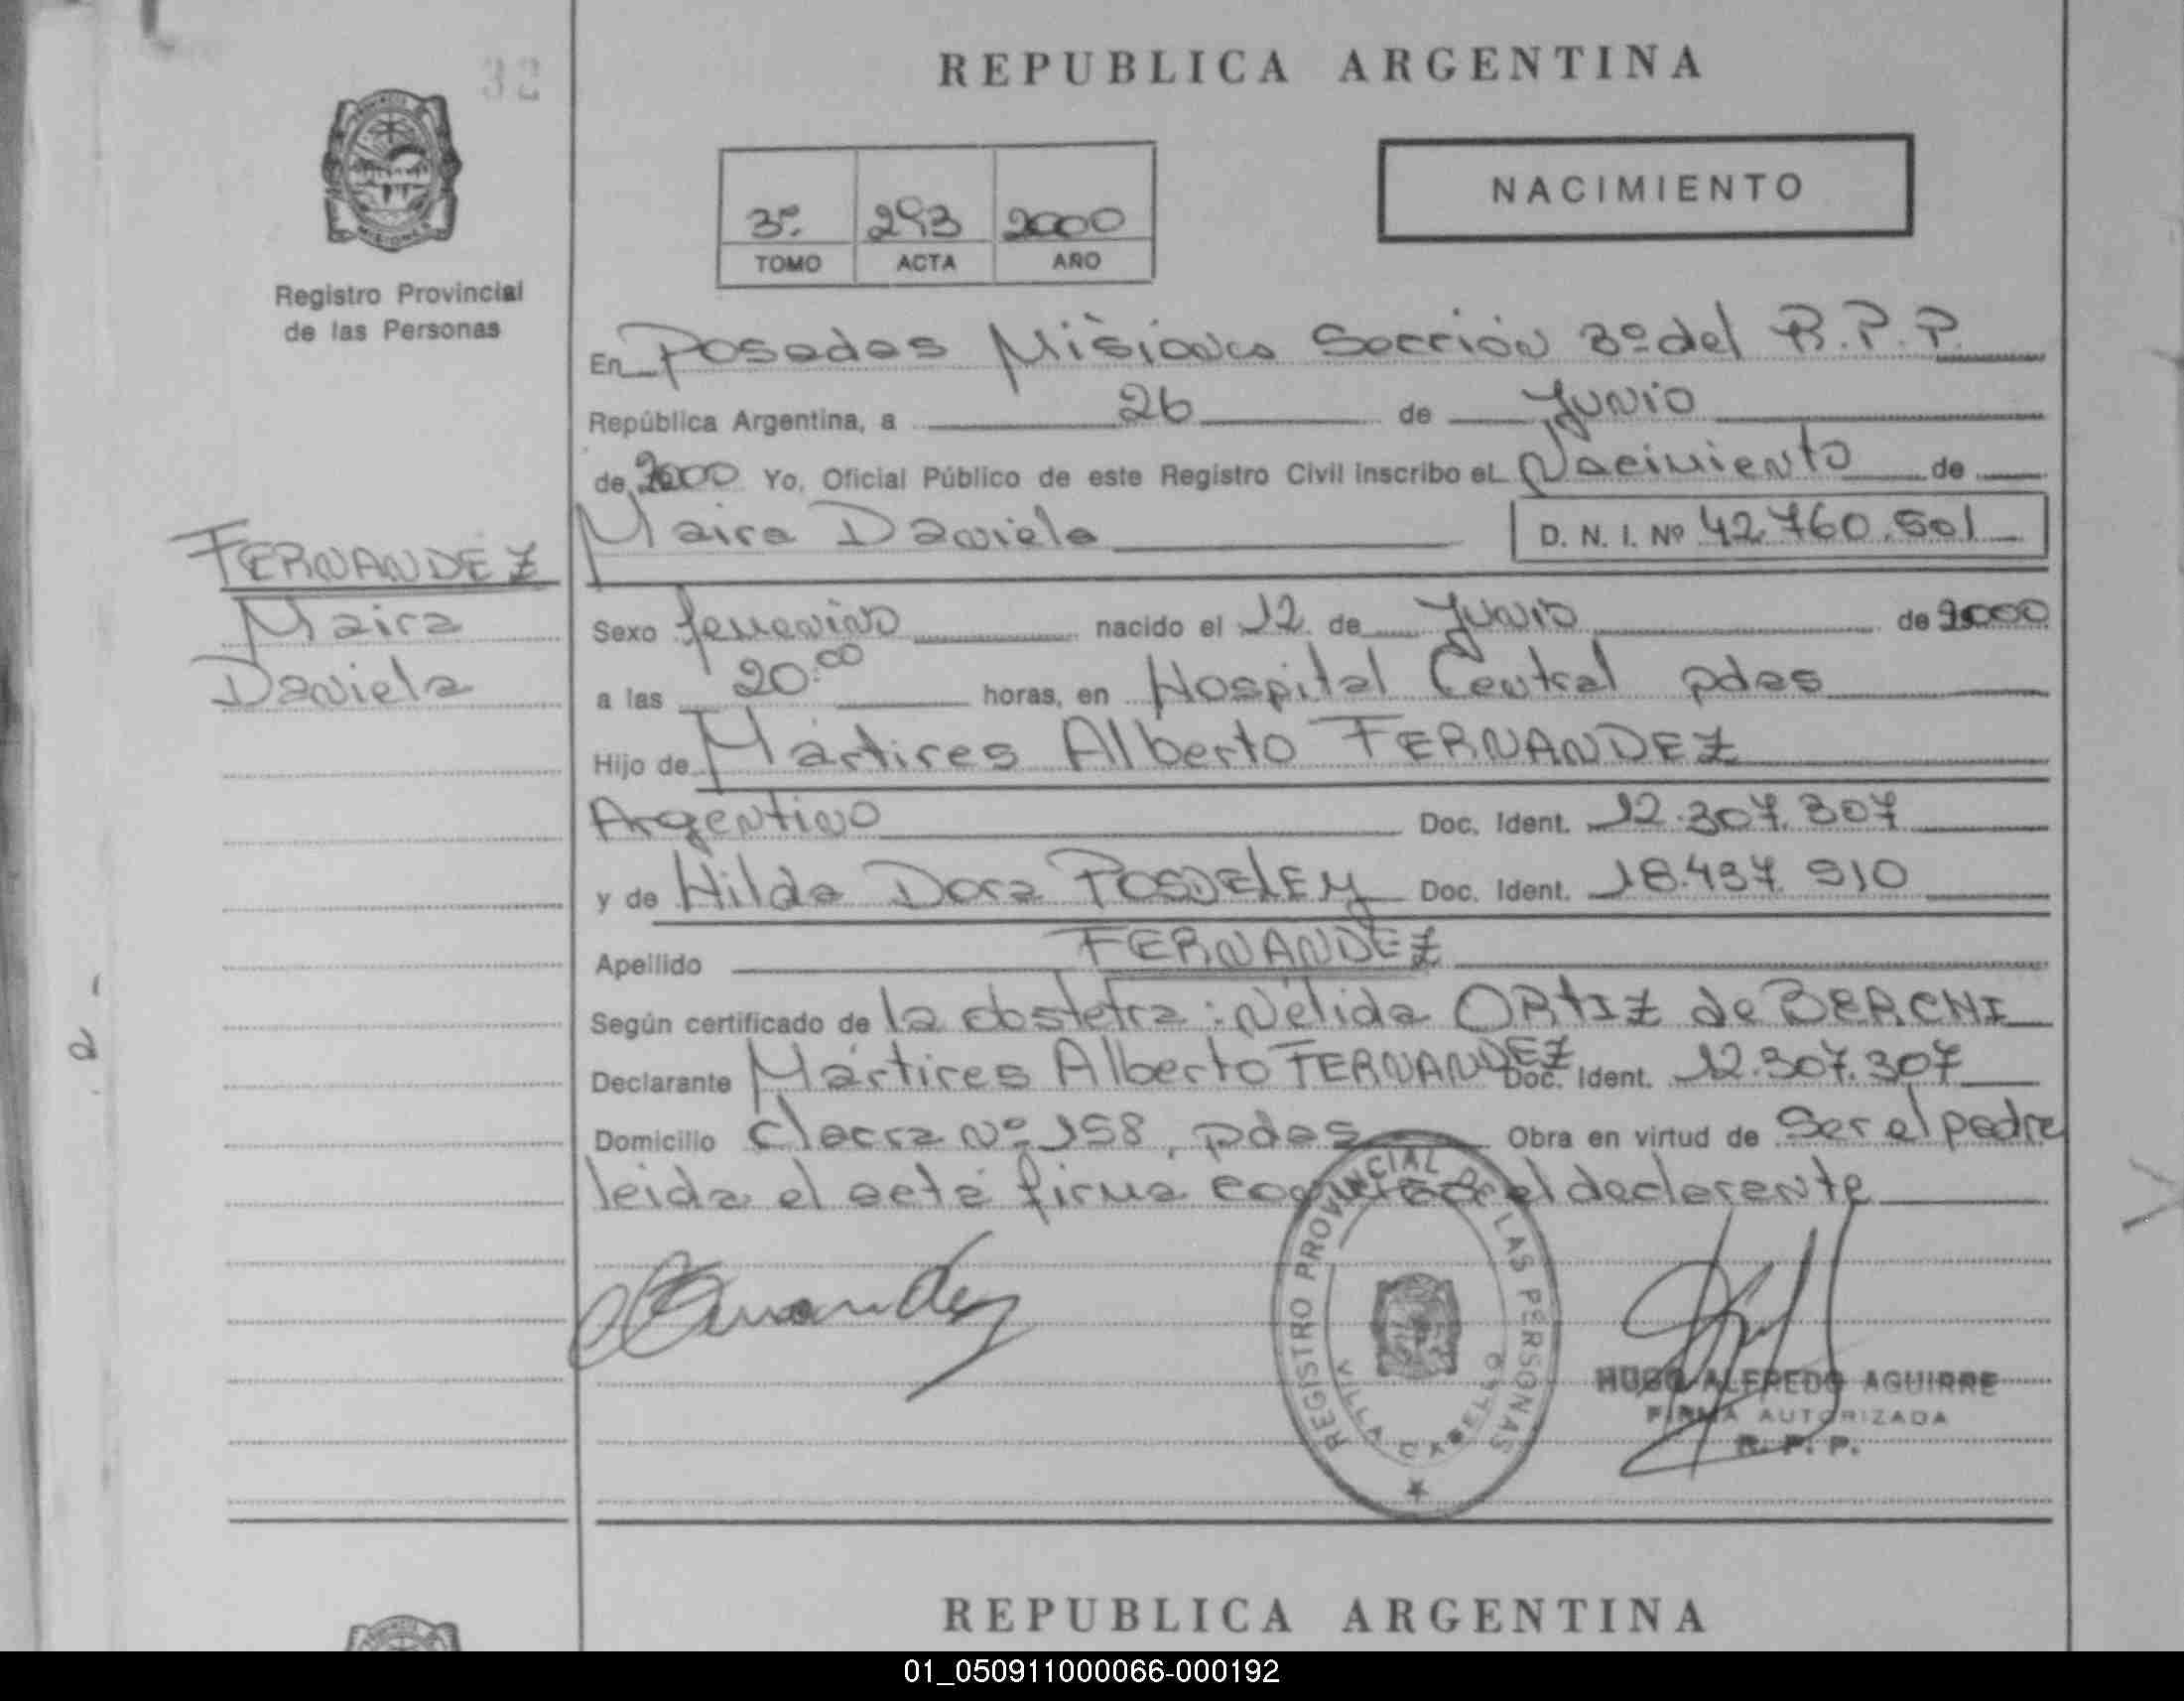 32
REPUBLICA ARGENTINA
NACIMIENTO
3º 293 2000
TOMO ACTA AÑO
Registro Provincial
de las Personas
En Posadas Misiones Sección 3º del R.P.P.
República Argentina, a 26 de Junio
de 2000 Yo, Oficial Público de este Registro Civil inscribo el Nacimiento de
Maira Daniela D. N. I. Nº 42.760.501
FERNANDEZ
Maira
Daniela
Sexo femenino nacido el 12 de Junio de 2000
a las 20:00 horas, en Hospital Central pdas
Hijo de Mártires Alberto FERNANDEZ
Argentino Doc. Ident. 12.307.307
y de Hilda Dora POSDELEY Doc. Ident. 18.437.910
Apellido FERNANDEZ
Según certificado de la obstetra: Nélida ORTIZ de BERCHI
Declarante Mártires Alberto FERNANDEZ Doc. Ident. 12.307.307
Domicilio chacra Nº 158, pdas Obra en virtud de Ser el padre
leida el acta firma conmigo el declarante
REGISTRO PROVINCIAL DE LAS PERSONAS
VILLA CABELLO
HUGO ALFREDO AGUIRRE
FIRMA AUTORIZADA
R. P. P.
REPUBLICA ARGENTINA
01_050911000066-000192